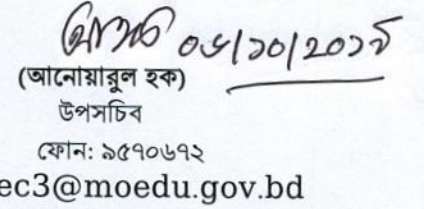 ০৬/১০/২০১৯
(আনোয়ারুল হক)
উপসচিব
ফোন: ৯৫৭০৬৭২
ec3@moedu.gov.bd